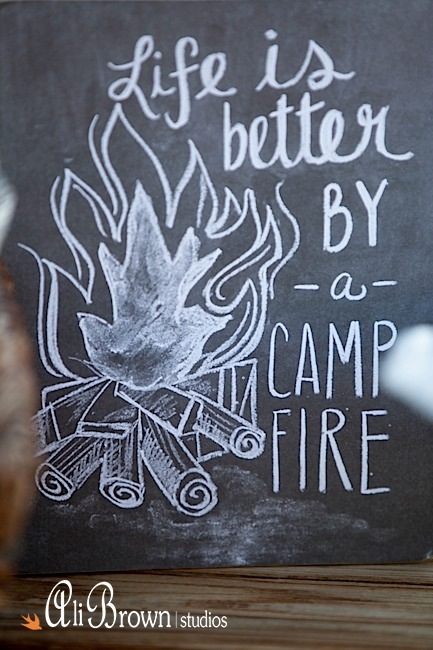 Life is
better
BY
-a-
CAMP
FIRE
AliBrown|studios